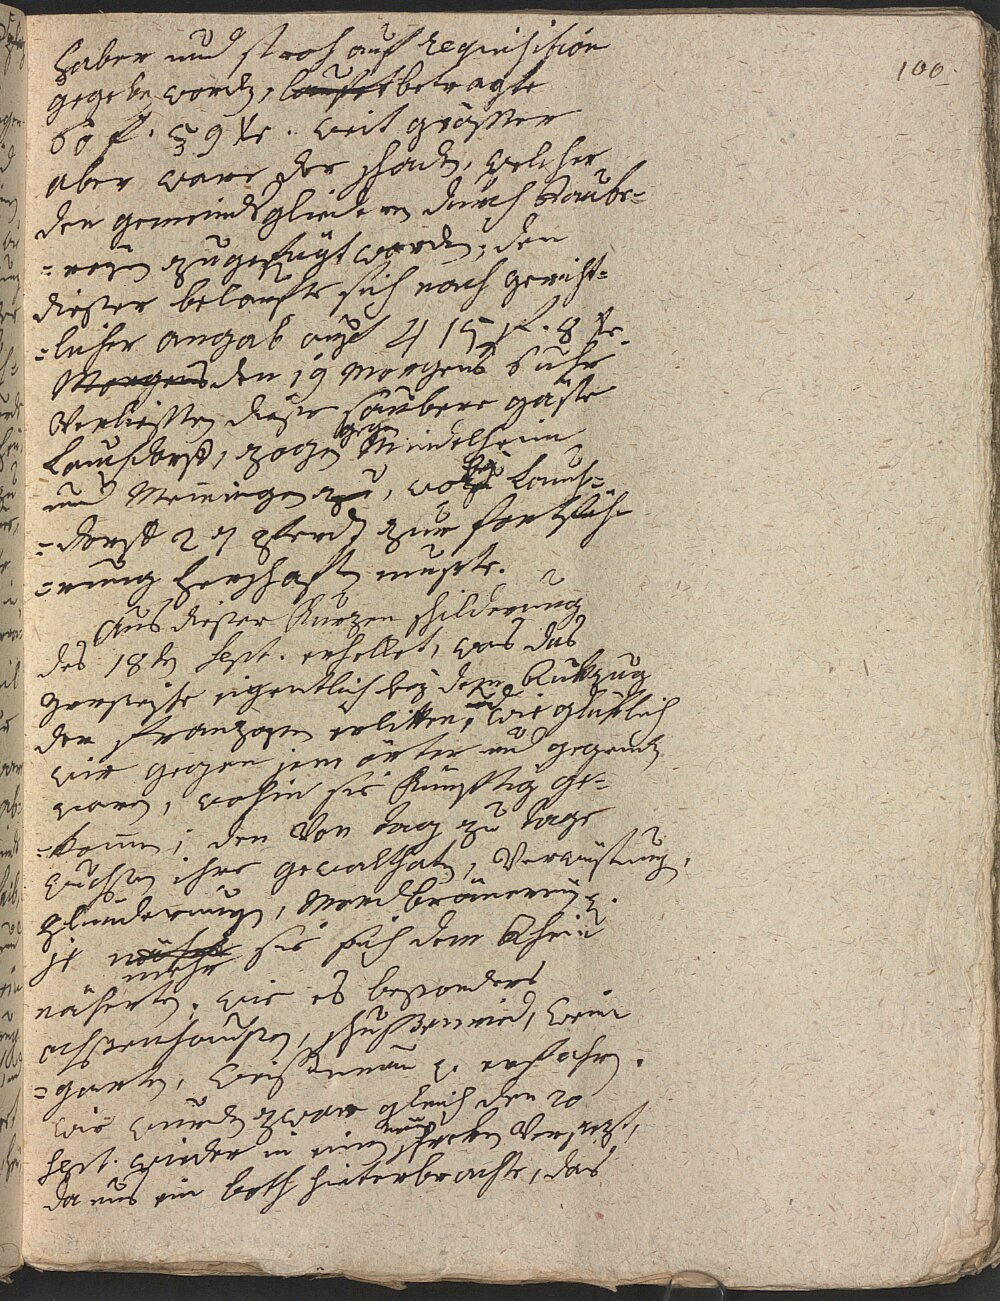 100.
haber und stroh auf requisition
gegebe worden, betragte
60 f. 59 kr. weit grösser
aber ware der schaden, welcher
den gemeindsgliedern durch Raube=
=reÿen zugefügt worden, den
dieser belaufte sich nach gericht=
=licher angab auf 415 f. 8 kr.
Morgens den 19 Morgens 6 uhr
verliessen diese saubere gäste
Lauchdorf, zogen gegen Mindelheim
und Meiningen zu, wo beÿ Lauch=
=dorf 27 pferd zur fortfüh=
=rung herschaffen muste.
Aus dieser kurzen schilderung
des 18ten Sept. erhellet, was das
eigentlich beÿ dem Rukzug
der franzosen erlitten, und wie glüklich
wir gegen jene örter und gegenden
waren, wohin sie künftig ge=
=kommen; den von tag zu tage
wuchsen ihre gewalthaten, verwüstung,
plünderungen, Mordbrennereÿ.
je mehr sie sich dem Rhein
näherten. wie es besonders
ochsenhausen, schussenried, wein
=garten, weissenau erfahren.
wir wurden zwar gleich den 20
Sept. wieder in einen neuen schreken versezt,
da uns ein both hinterbrachte, das